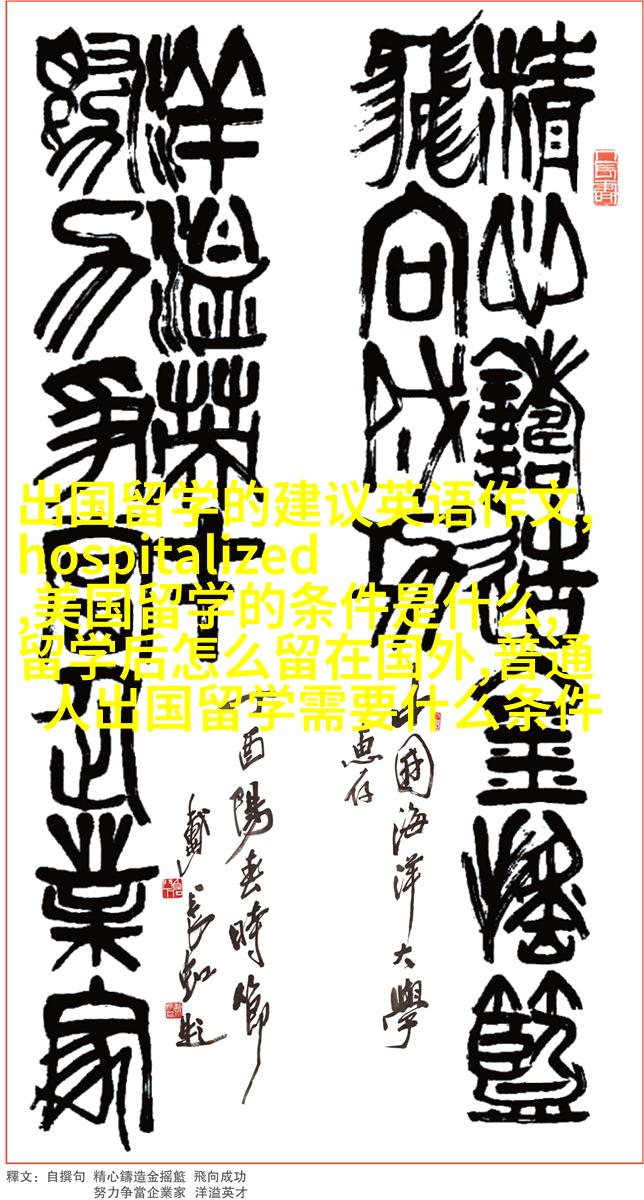 精心鑄造金搖籃
飛向成功
中國海洋大學
惠存
洋溢英才
努力爭當企業家
丁酉陽春時節
戴長虹題
出国留学的建议英语作文,
hospitalized
,美国留学的条件是什么,
留学后怎么留在国外,普通
人出国留学需要什么条件
釋文：自撰句 精心鑄造金摇籃 飛向成功
努力争當企業家 洋溢英才